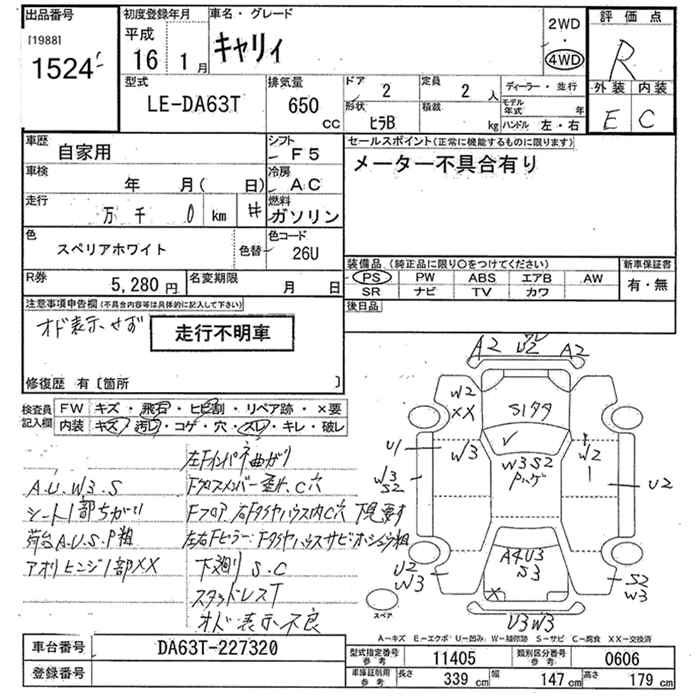 出品番号
[1988]
1524
初度登録年月
平成
16 1月
車名・グレード
キャリィ
2WD
・
4WD
評価点
R
外装 内装
E C
型式
LE-DA63T
排気量
650
cc
ドア
2
定員
2 人
形状
ヒラB
積載
kg
ディーラー・並行
モデル年式 年
ハンドル 左・右
車歴
自家用
シフト
F5
車検
年 月( 日)
冷房
AC
走行
万 千 0 km #
燃料
ガソリン
色
スペリアホワイト
色替
色コード
26U
R券
5,280円
名変期限
月 日
セールスポイント(正常に機能するものに限ります)
メーター不具合有り
装備品 (純正品に限り○をつけてください)
PS PW ABS エアB AW
SR ナビ TV カワ
新車保証書
有・無
後日品
注意事項申告欄(不具合内容等は具体的に記入して下さい)
オド表示せず
走行不明車
修復歴 有[箇所 ]
検査員
記入欄
FW キズ・飛石・ヒビ割・リペア跡・×要
内装 キズ・汚レ・コゲ・穴・スレ・キレ・破レ
左Fインパネ曲がり
A.U.W3.S
シート1部ちがい
荷台A.U.S.P粗
アオリヒンジ1部XX
FクロスメンバーC穴
Fフロア、右FタイヤハウスC穴 下見要す
左右Fピラー、Fタイヤハウスサビホシュウ粗
下廻りS.C
スタッドレスT
オド表示不良
A2 U2 A2
W2
XX
S1タタ
U1
W3
W3S2
Pハゲ
W2
1
W3
S2
U2
U2
W3
A4U3
S3
X
S2
W3
U3W3
スペア
A-キズ E-エクボ U-凹み W-補修跡 S-サビ C-腐食 XX-交換済
車台番号
DA63T-227320
登録番号
型式指定番号
参考
11405
類別区分番号
参考
0606
車庫証明用
参考
長さ 339 cm 幅 147 cm 高さ 179 cm